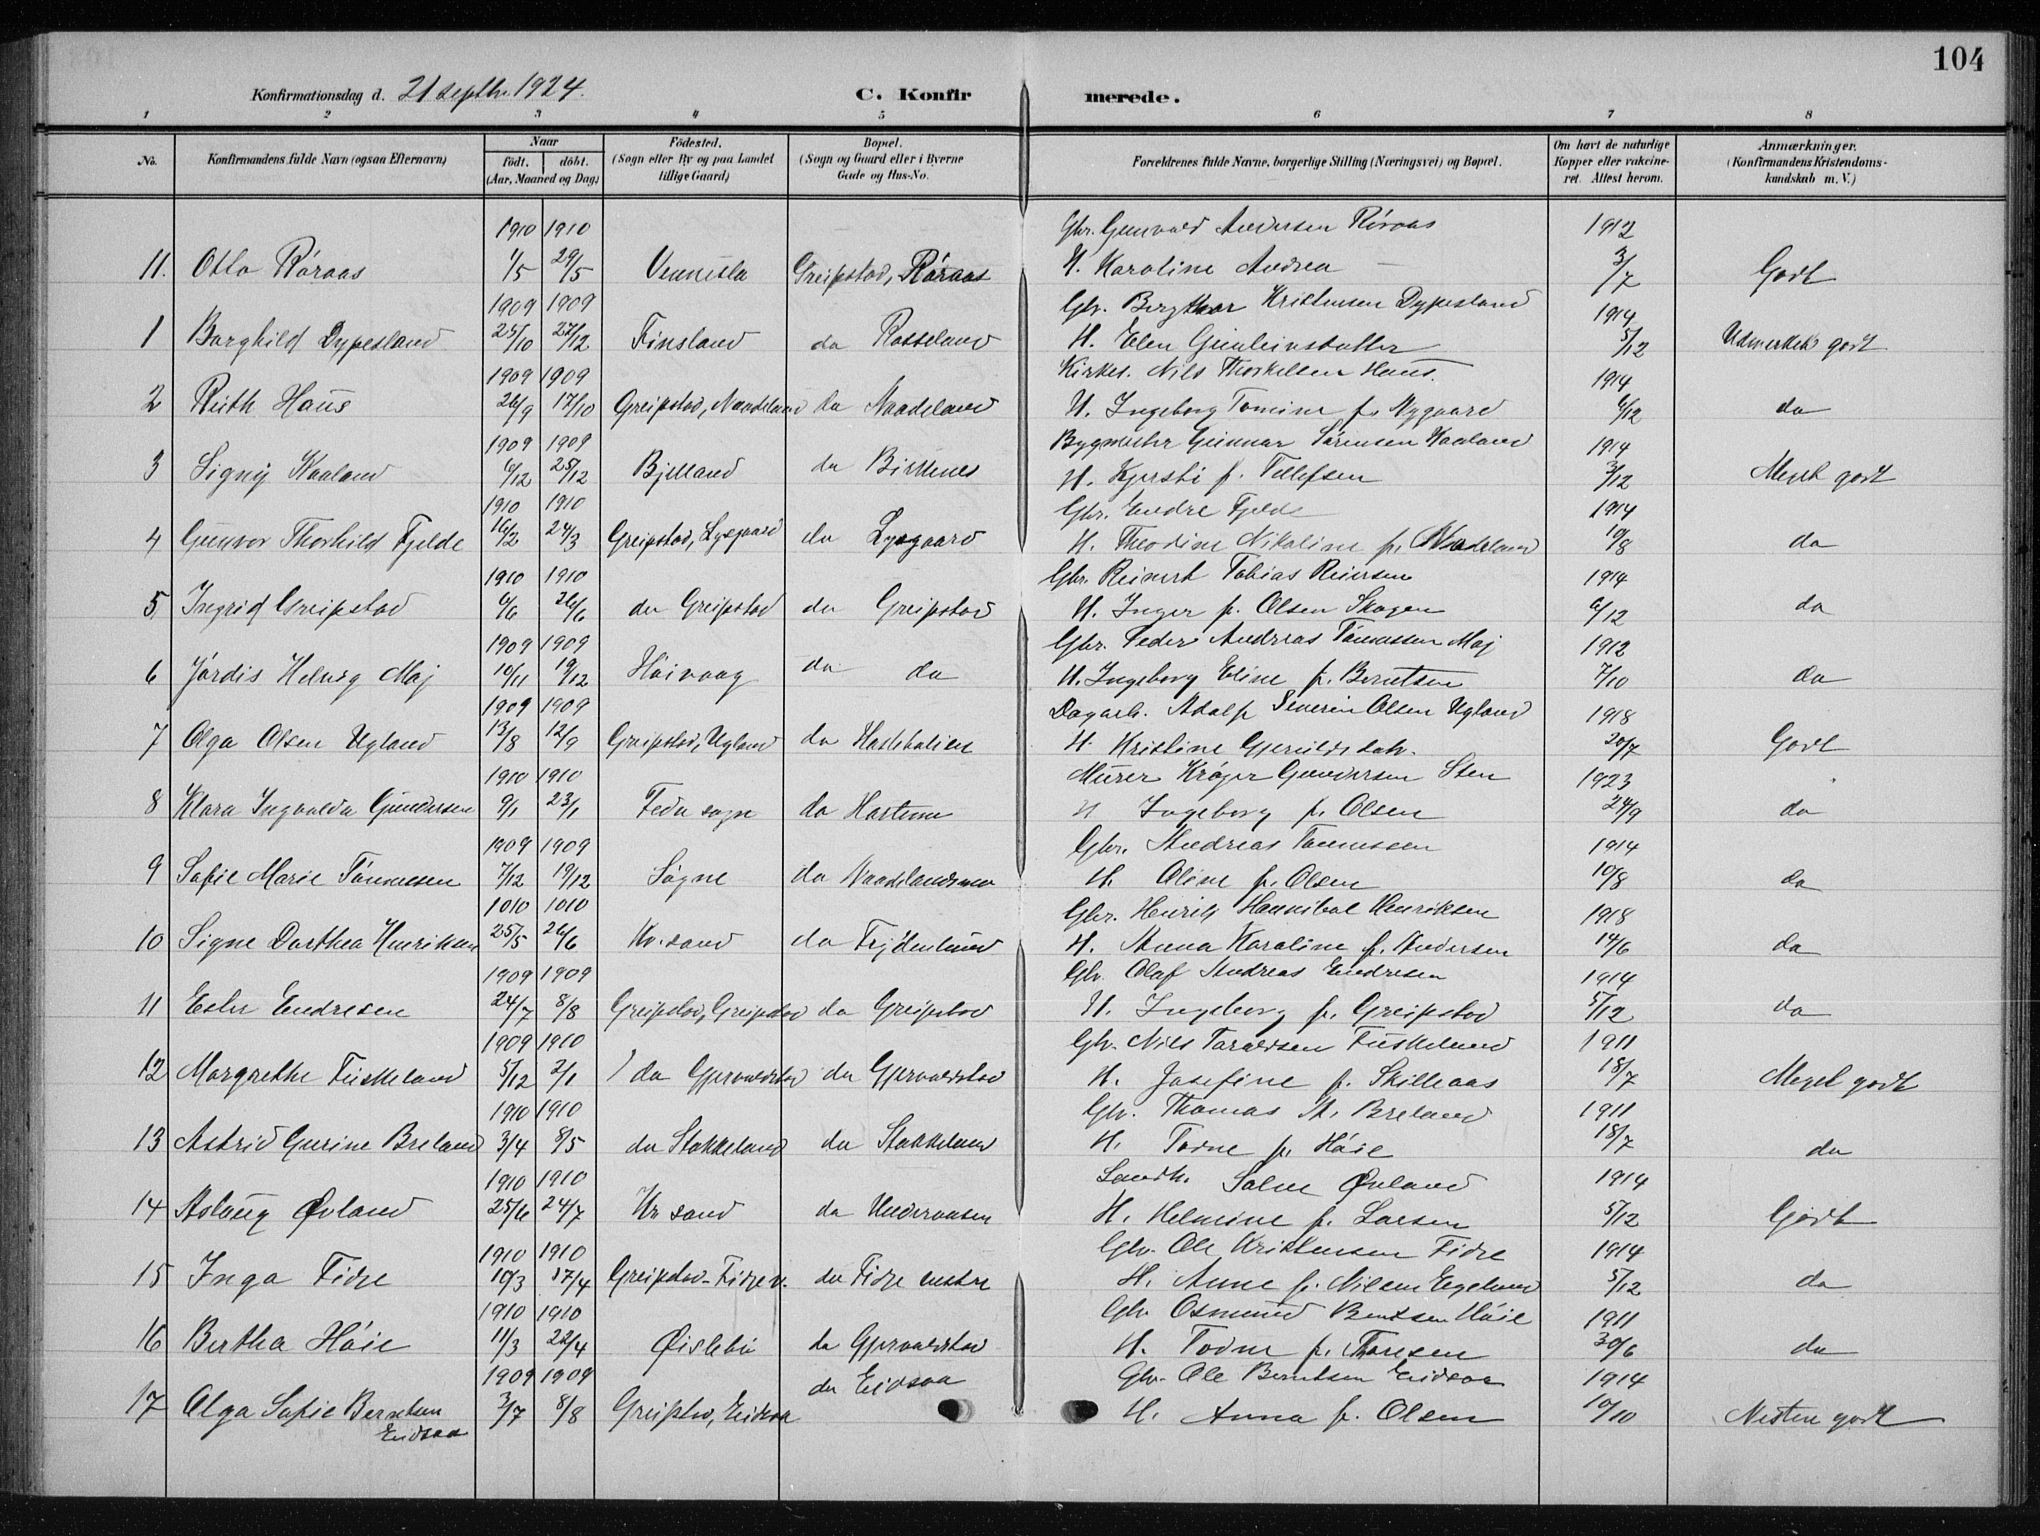 104
Konfirmationsdag d. 21 septbr. 1924.
C. Konfirmerede.
1 2 3 4 5 6 7 8
No.
Konfirmandens fulde Navn (ogsaa Efternavn)
Naar
födt. döbt.
(Aar, Maaned og Dag)
Födested.
(Sogn eller By og paa Landet
tillige Gaard)
Bopæl.
(Sogn og Gaard eller i Byerne
Gade og Hus-No.
Forældrenes fulde Navne, borgerlige Stilling (Næringsvei) og Bopæl.
Om havt de naturlige
Kopper eller vakcine-
ret. Attest herom.
Anmærkninger.
(Konfirmandens Kristendoms-
kundskab m. V.)
1910 1910 Gbr. Gunvald Andersen Röraas 1912
11. Otto Röraas 1/5 29/5 Vennesla Greipstad, Röraas H. Karoline Andrea — 3/7 Godt
1909 1909 Gbr. Bergthor Kristensen Dypesland 1914
1 Borghild Dypesland 25/10 27/12 Finsland do Rosseland H. Elen 5/12 Udmerket godt
1909 1909 Nils Thorkelsen Haus. 1914
2 Ruth Haus 26/9 17/10 Greipstad, Naadeland do Naadeland H. Ingeborg Tomine f. Nygaard 6/12 do
1909 1909 Bygmester Gunnar Sörensen Kaaland 1914
3 Signy Kaaland 6/12 25/12 Bjelland do Birkenes H. Kjersti f. Tellefsen 3/12 Meget godt
1910 1910 Gbr. Endre Fjelde 1914
4 Gunvor Thorhild Fjelde 16/2 24/3 Greipstad, Lysgaard do Lysgaard H. Theodine Nikoline f. 10/8 do
1910 1910 Gbr. Reinert Tobias Reiersen 1914
5 Ingrid Greipstad 6/6 26/6 do Greipstad do Greipstad H. Inger f. Olsen Skogen 6/12 do
1909 1909 Gbr. Peder Andreas Tönnessen Maj 1912
6 Jördis Helvig Maj 10/11 19/12 Höivaag do do H. Ingeborg Eline f. Berntsen 7/10 do
1909 1909 Dagarb. Adolf Severin Olsen Ugland 1918
7 Olga Olsen Ugland 13/8 12/9 Greipstad, Ugland do H. Kristine 20/7 Godt
1910 1910 Murer Kröger Gundersen Sten 1923
8 Klara Ingvalda Gundersen 9/1 23/1 Feda sogn do Hortemo H Ingeborg f. Olsen 24/9 do
1909 1909 Gbr. Andreas Tönnessen 1914
9 Sofie Marie Tönnesen 7/12 19/12 Sögne do Naadelandsmo H. Oline f. Olsen 10/8 do
1910 1910 Gbr. Henrik Hannibal Henriksen 1918
10 Signe Dorthea Henriksen 25/5 26/6 Kr. sand do Frydenlund H. Anna Karoline f. Andersen 14/6 do
1909 1909 Gbr. Olaf Andreas Endresen 1914
11 Ester Endresen 24/7 8/8 Greipstad, Greipstad do Greipstad H. Ingeborg f. Greipstad 5/12 do
1909 1910 Gbr. Nils Taraldsen Fuskeland 1911
12 Margrethe Fuskeland 5/12 2/1 do Gjervaldstad do Gjervaldstad H. Josefine f. Skilleaas 18/7 Meget godt
1910 1910 Gbr. Thomas A. Breland 1911
13 Astrid Gurine Breland 3/4 8/5 do Stokkeland do Stokkeland H. Torne f. Höie 18/7 do
1910 1910 Landh. Salve Øvland 1914
14 Aslaug Øvland 25/6 24/7 Kr sand do Underaasen H. Helmine f. Larsen 5/12 Godt
1910 1910 Gbr. Ole Kristensen Fidje 1914
15 Inga Fidje 10/3 17/4 Greipstad - Fidje v. do Fidje vestre H. Anne f. Nilsen Eigeland 5/12 do
1910 1910 Gbr Osmund Bentsen Höie 1911
16 Bertha Höie 11/3 22/4 Øislebö do Gjervaldstad H. Torne f. Thoresen 30/6 do
1909 1909 Gbr. Ole Berntsen Eidsaa 1914
17 Olga Sofie Berntsen 3/7 8/8 Greipstad, Eidsaa do Eidsaa H. Anna f. Olsen 10/10 Nesten godt
Eidsaa